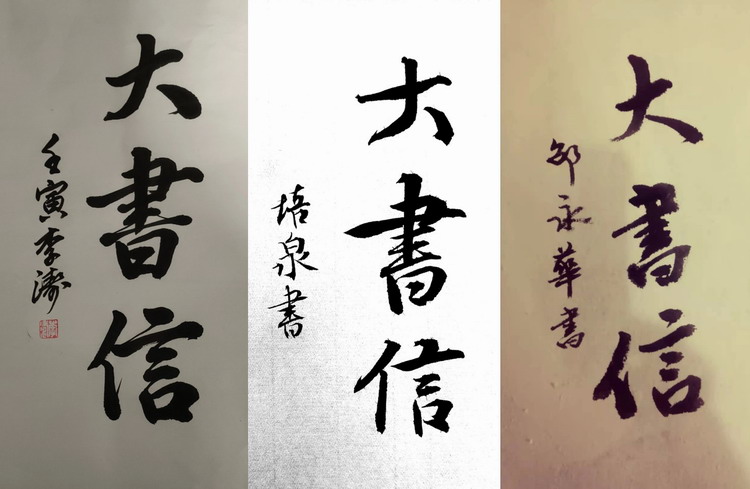 大書信
壬寅李濤
大書信
培泉書
大書信
邹永華書